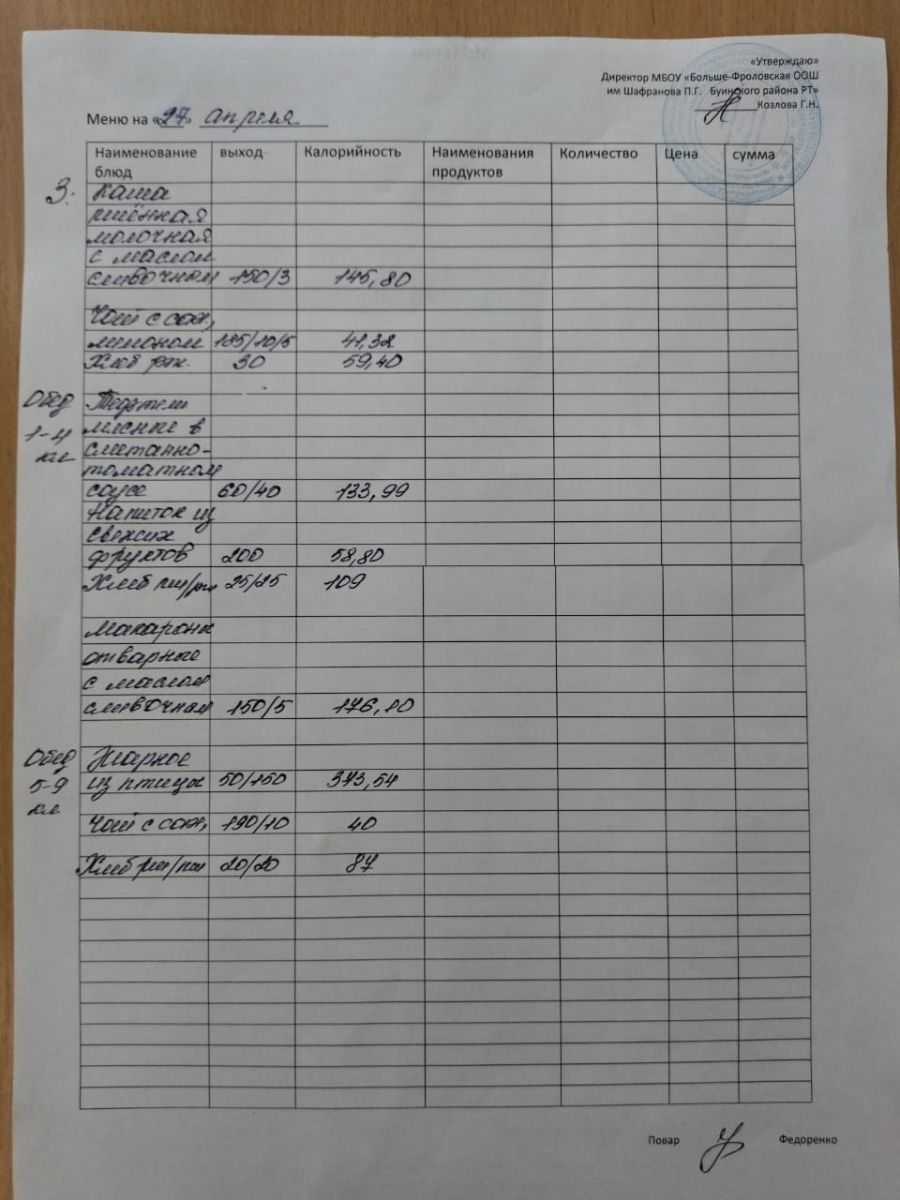 «Утверждаю»
Директор МБОУ «Больше-Фроловская ООШ
им Шафранова П.Г. Буинского района РТ»
Козлова Г.Н.
Меню на «27» апреля
Наименование блюд выход Калорийность Наименования продуктов Количество Цена сумма
З. Каша
пшённая
молочная
с маслом
сливочным 150/3 145,80
Чай с сах,
лимоном 185/10/5 41,32
Хлеб рж. 30 59,40
Обед Тефтели
1-4 мясные в
кл сметанно-
томатном
соусе 60/40 133,99
Напиток из
свежих
фруктов 200 58,80
Хлеб пш/рж 25/25 109
Макароны
отварные
с маслом
сливочным 150/5 176,10
Обед Жаркое
5-9 из птицы 50/150 373,54
кл
Чай с сах, 190/10 40
Хлеб рж/пш 20/20 87
Повар Федоренко